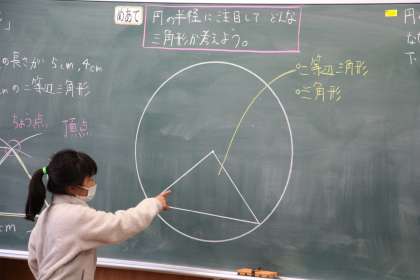 めあて
円の半径に注目して どんな
三角形か考えよう。
の長さが 5cm, 4cm
の二等辺三角形
ちょう点
頂点
二等辺三角形
三角形
円